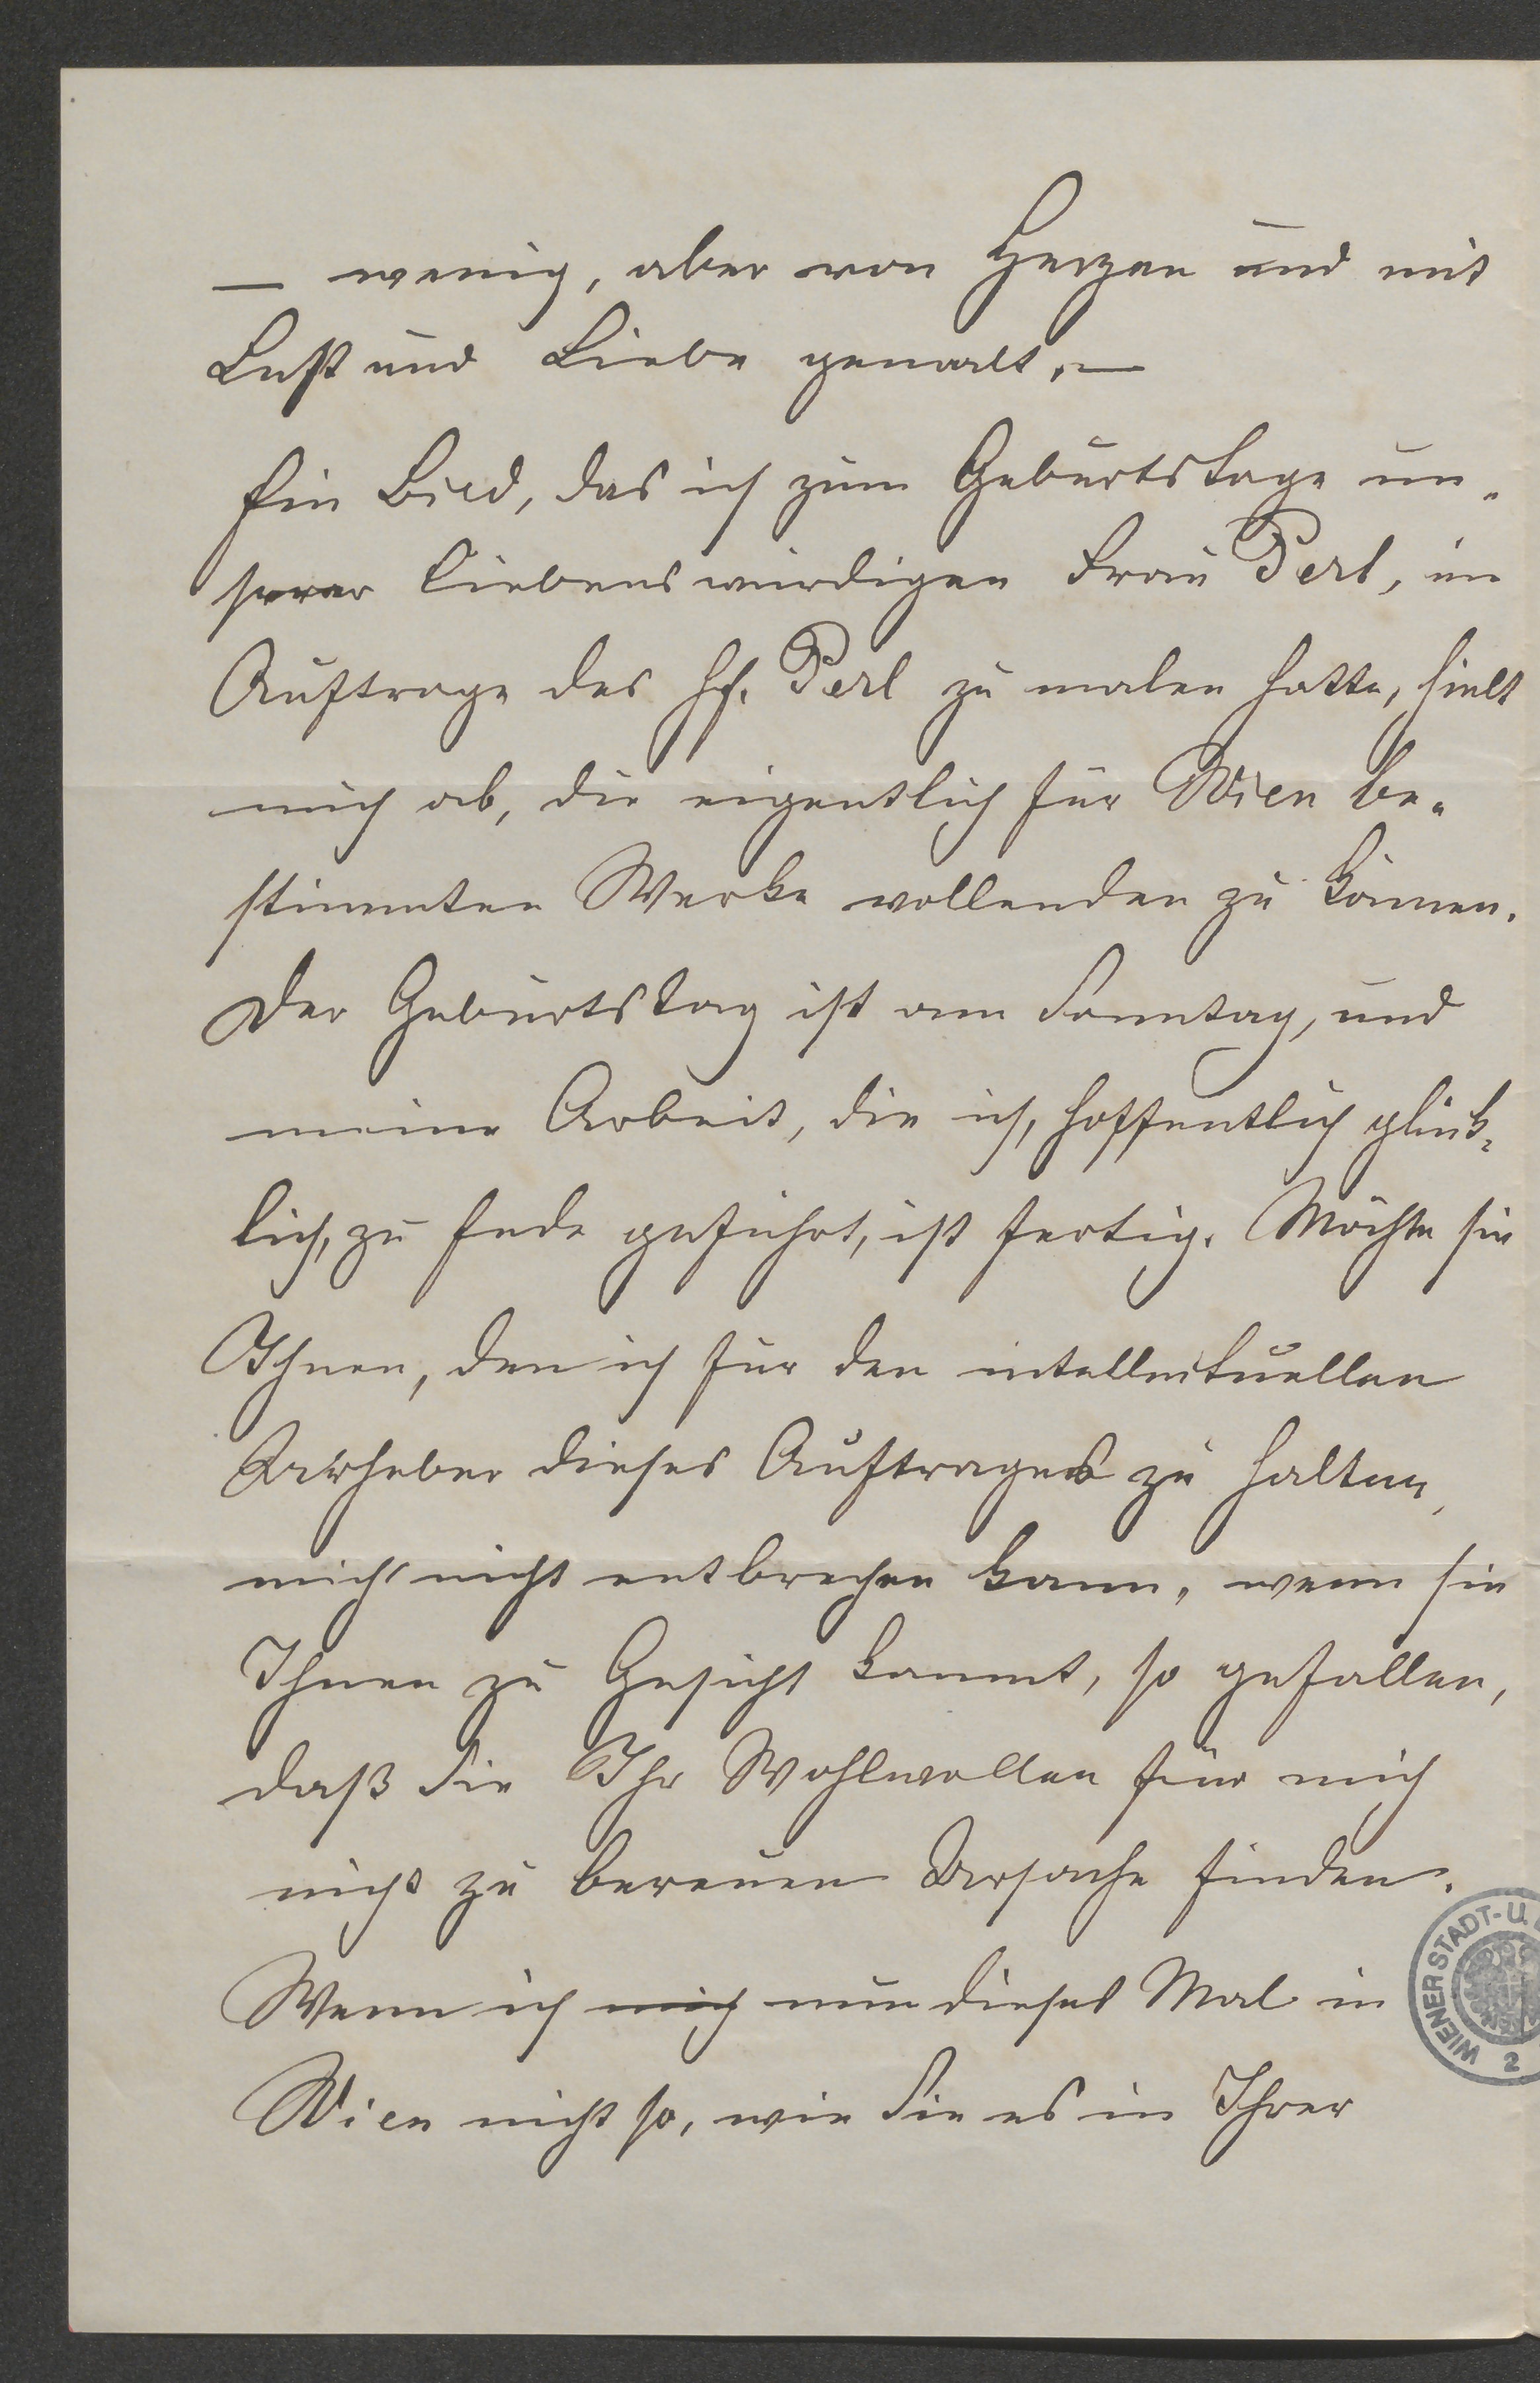 — wenig, aber von Herzen und mit
Lust und Liebe gemalt. —
Ein Bild, das ich zum Geburtstage un-
serer liebenswürdigen Frau Perl, im
Auftrage des H. Perl zu malen hatte, hielt
mich ab, die eigentlich für Wien be-
stimmten Werke vollenden zu können.
Der Geburtstag ist am Sonntag, und
meine Arbeit, die ich, hoffentlich glück-
lich, zu Ende geführt, ist fertig. Möchte sie
Ihnen, den ich für den intellectuellen
Urheber dieses Auftrages zu halten,
mich nicht entbrechen kann, wenn sie
Ihnen zu Gesicht kommt, so gefallen,
daß Sie Ihr Wohlwollen für mich
nicht zu bereuen Ursache finden.
Wenn ich mich nun dieses Mal in
Wien nicht so, wie Sie es in Ihrer
WIENER STADT- U.
2